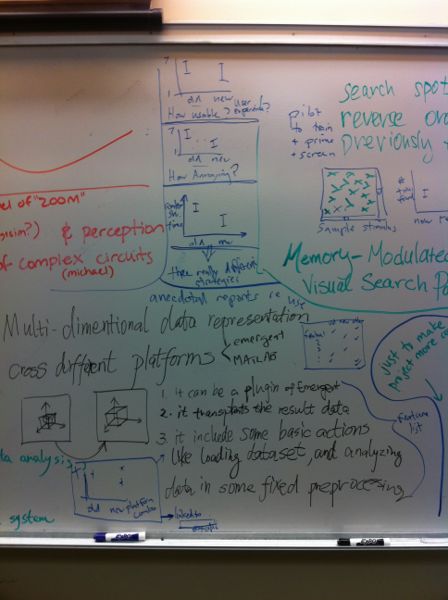 7
1
old new
How usable? User experience?
7
1
old new
How Annoying?
time
old new
three really different
strategies
anecdotal reports re use
pilot
to train
+ prime
+ screen
search spot
reverse or
previously
Sample stimulus
Memory-Modulated
Visual Search
of "ZOOM"
& perception
of complex circuits
(michael)
Multi-dimentional data representation
cross different platforms
emergent
MATLAB
1. it can be a plugin of Emergent
2. it transplats the result data
3. it include some basic actions
like loading dataset, and analyzing
data in some fixed preprocessing
Feature
list
Just to make
project more
analysis
old new platform
system
linked to
EXPO
EXPO